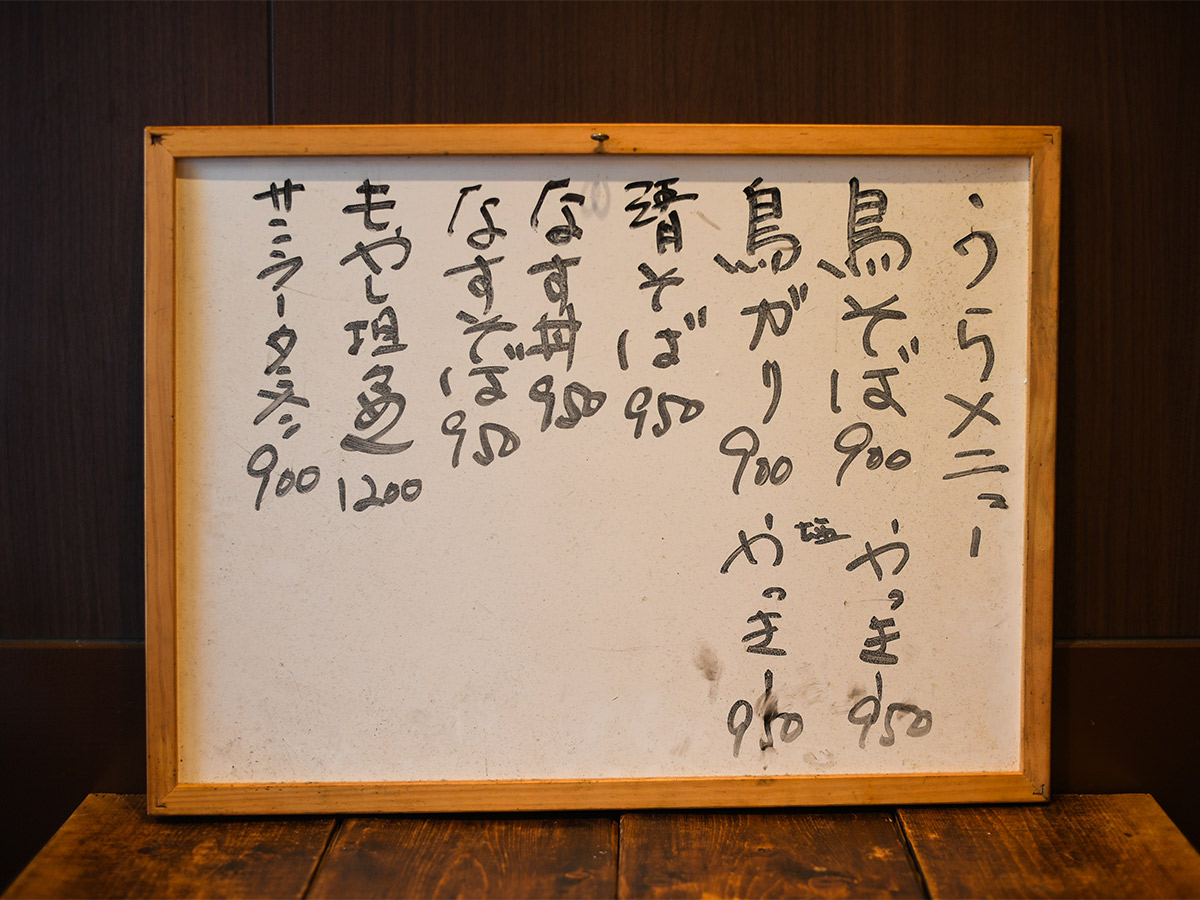 うらメニュー
鳥そば 900 やっきー 950
鳥がり 900 塩やっきー 950
清そば 950
なす丼 950
なすそば 950
もやし坦々めん 1200
サンラータンメン 900